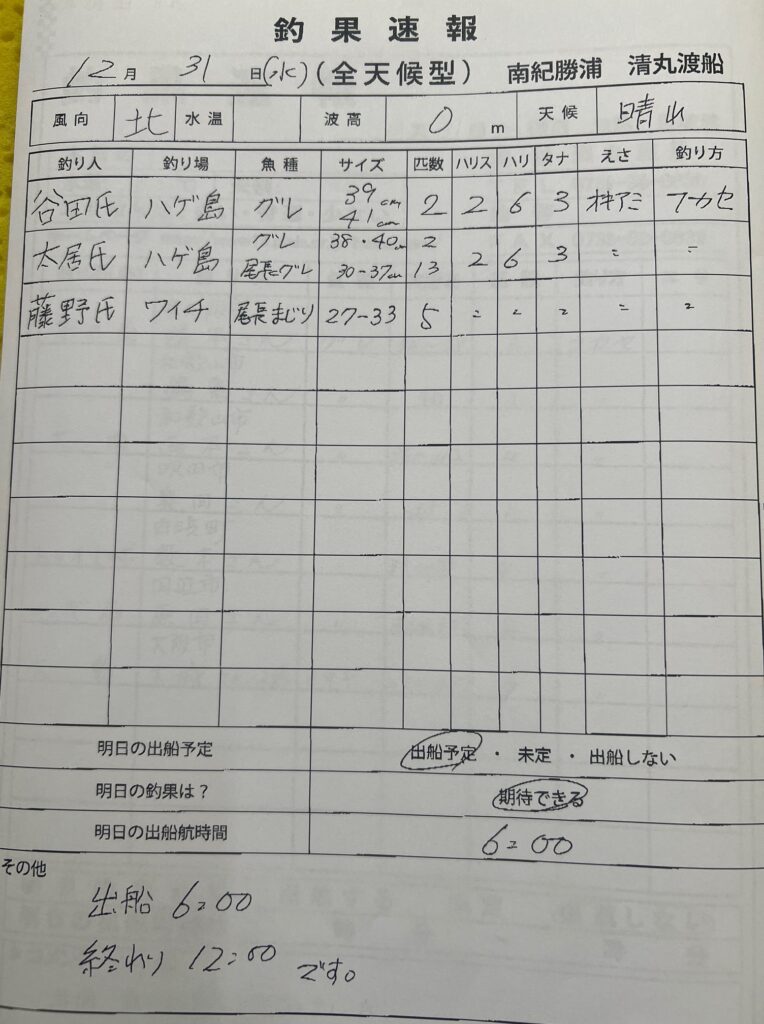 釣果速報
12月 31日(水)(全天候型) 南紀勝浦 清丸渡船
風向 北 水温 波高 0 m 天候 晴れ
釣り人 釣り場 魚種 サイズ 匹数 ハリス ハリ タナ えさ 釣り方
谷田氏 ハゲ島 グレ 39cm 41cm 2 2 6 3 オキアミ フカセ
太居氏 ハゲ島 グレ 38・40cm 2
尾長グレ 30-37cm 13 2 6 3 〃 〃
藤野氏 ワイチ 尾長まじり 27-33 5 〃 〃 〃 〃 〃
明日の出船予定 出船予定 ・ 未定 ・ 出船しない
明日の釣果は? 期待できる
明日の出船航時間 6:00
その他
出船 6:00
終わり 12:00 です。